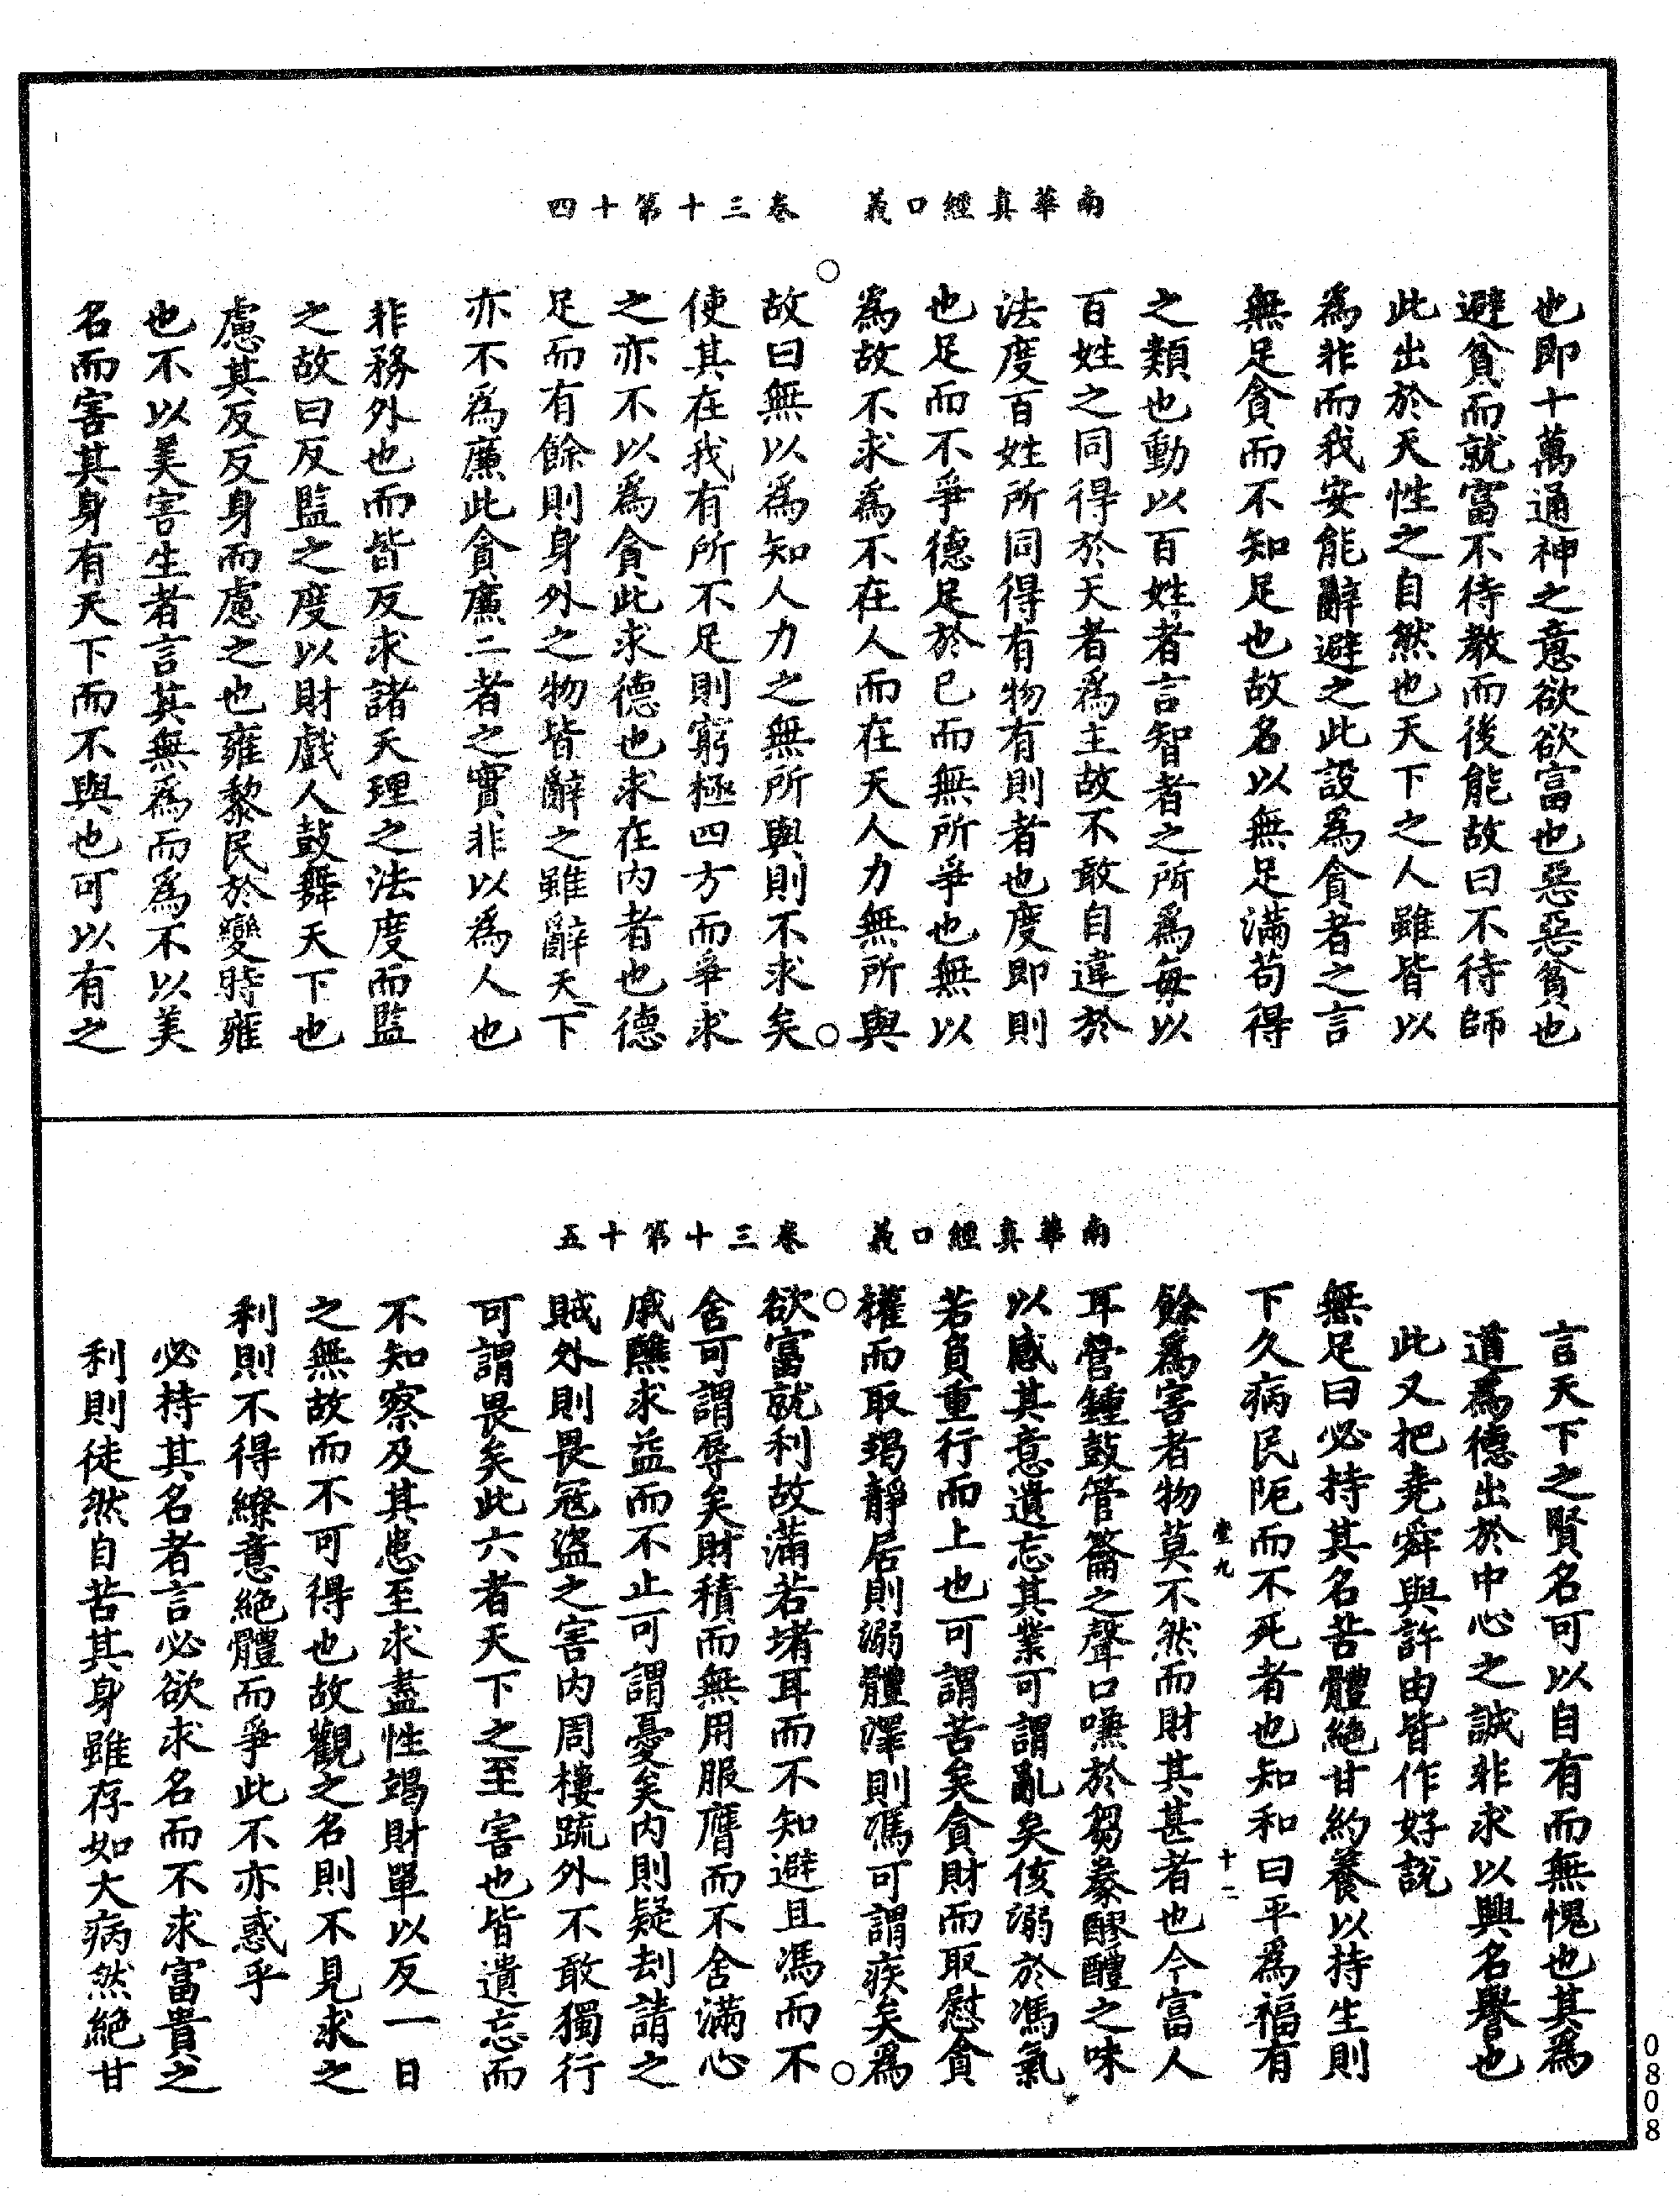 南華真經口義　卷三十第十四
也即十萬通神之意欲欲富也惡惡貧也
避貧而就富不待教而後能故曰不待師
此出於天性之自然也天下之人雖皆以
為非而我安能辭避之此設為貪者之言
無足貪而不知足也故名以無足滿苟得
之類也動以百姓者言智者之所為每以
百姓之同得於天者為主故不敢自違於
法度百姓所同得有物有則者也度即則
也足而不爭德足於已而無所爭也無以
為故不求為不在人而在天人力無所與
故曰無以為知人力之無所與則不求矣
使其在我有所不足則窮極四方而爭求
之亦不以為貪此求德也求在内者也德
足而有餘則身外之物皆辭之雖辭天下
亦不為廉此貪廉二者之實非以為人也
非務外也而皆反求諸天理之法度而監
之故曰反監之度以財戲人鼓舞天下也
慮其反反身而慮之也雍黎民於變時雍
也不以美害生者言其無為而為不以美
名而害其身有天下而不與也可以有之
南華真經口義　卷三十第十五
言天下之賢名可以自有而無愧也其為
道為德出於中心之誠非求以興名譽也
此又把堯舜與許由皆作好說
無足曰必持其名苦體絕甘約養以持生則
下久病民阨而不死者也知和曰平為福有
堂九
十二
餘為害者物莫不然而財其甚者也今富人
耳營鍾鼓管籥之聲口嗛於芻豢醪醴之味
以感其意遺忘其業可謂亂矣侅溺於馮氣
若負重行而上也可謂苦矣貪財而取慰貪
權而取竭靜居則溺體澤則馮可謂疾矣為
欲富就利故滿若堵耳而不知避且馮而不
舍可謂辱矣財積而無用服膺而不舍滿心
戚醮求益而不止可謂憂矣内則疑刦請之
賊外則畏冦盜之害内周樓䟽外不敢獨行
可謂畏矣此六者天下之至害也皆遺忘而
不知察及其患至求盡性竭財單以反一日
之無故而不可得也故觀之名則不見求之
利則不得繚意絕體而爭此不亦惑乎
必持其名者言必欲求名而不求富貴之
利則徒然自苦其身雖存如大病然絕甘
0808